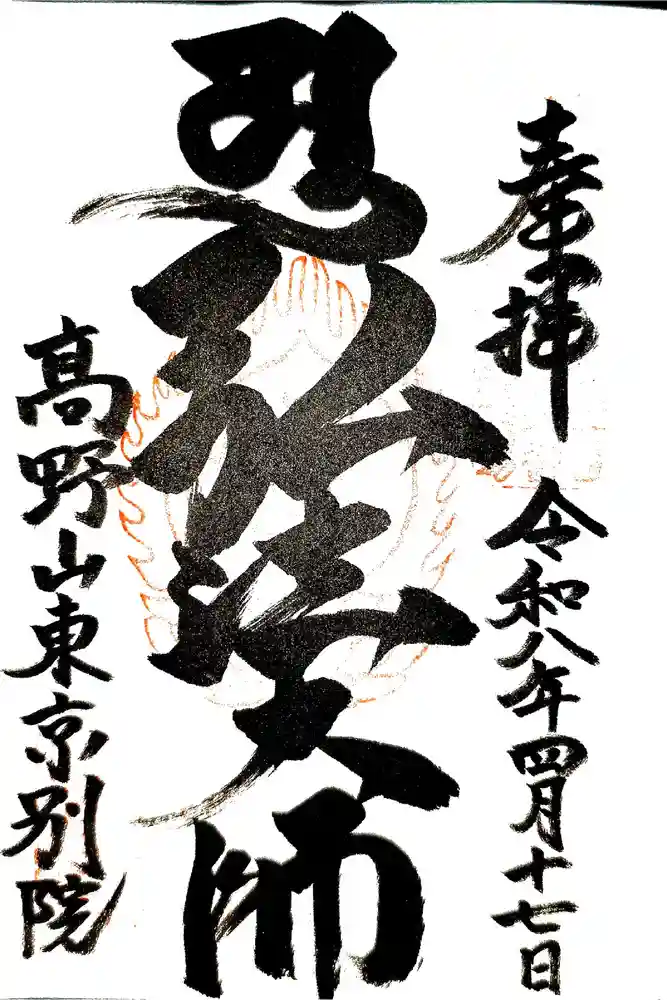 奉拝
令和八年四月十七日
弘法大師
高野山東京別院